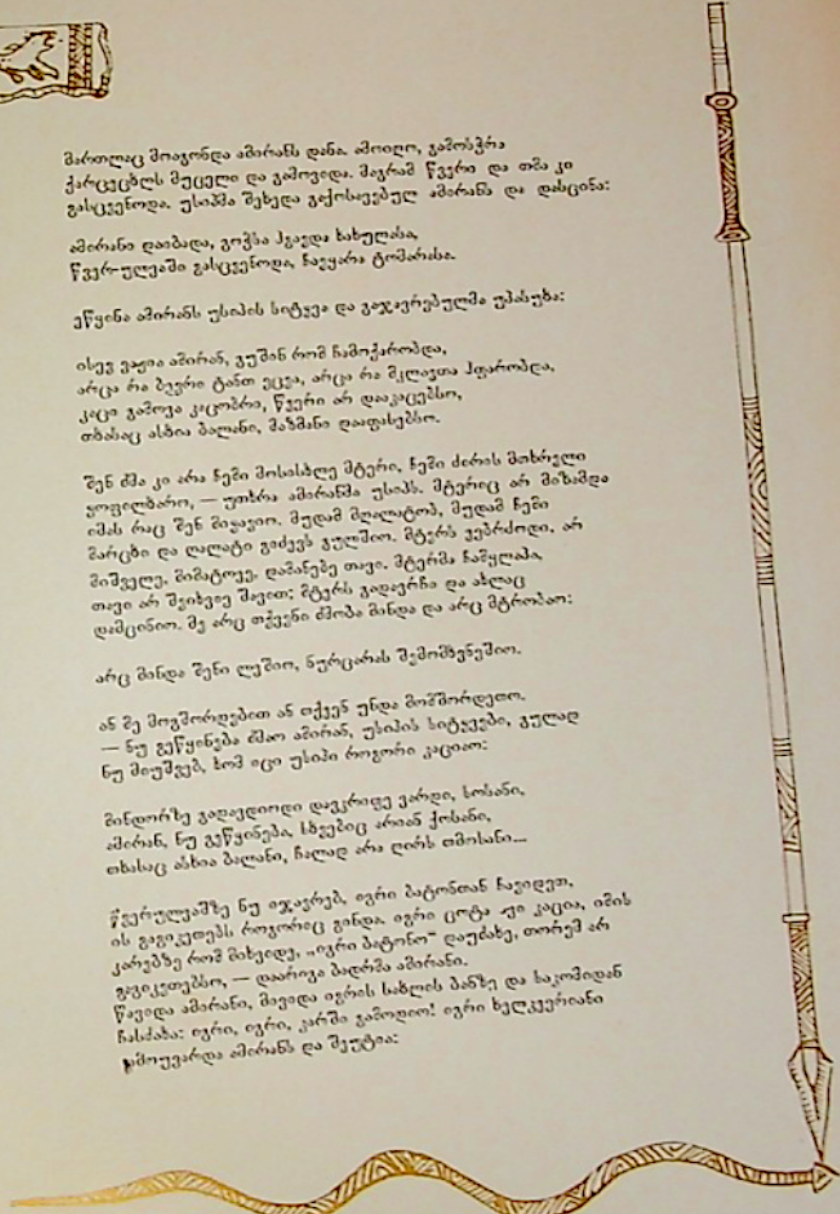 მართლაც მოაგონდა ამირანს დანა. ამოიღო, გამოსჭრა
მუცელი და გამოვიდა. მაგრამ წვერი და თმა კი
გასცვენოდა. უსიპმა შეხედა გაქოსავებულ ამირანს და დასცინა:
ამირანი დაიბადა, გოჭსა ჰგავდა ხახულასა,
წვერ-ულვაში გასცვენოდა, ჩაეყარა ტომარასა.
ეწყინა ამირანს უსიპის სიტყვა და გაჯავრებულმა უპასუხა:
ისევ ვაჟია ამირან, გუშინ რომ ჩამოქარობდა,
არცა რა ბევრი ტანთ ეცვა, არცა რა მკლავთა ჰფარობდა,
კაცი გამოვა კაცობრი, წვერი არ დააკაცებსო,
თხასაც ასხია ბალანი, მაზმანი დააფასებსო.
შენ ძმა კი არა ჩემი მოსისხლე მტერი, ჩემი ძირის მთხრელი
ყოფილხარო, — უთხრა ამირანმა უსიპს. მტერიც არ მიზამდა
იმას რაც შენ მიყავიო. მუდამ მღალატობ, მუდამ ჩემი
მარცხი და ღალატი გიძევს გულშიო. მტერს ვებრძოდი, არ
მიშველე, მიმატოვე, დამანებე თავი. მტერმა ჩამყლაპა,
თავი არ შეიხვიე შავით; მტერს გადავრჩი და ახლაც
დამცინიო. მე არც თქვენი ძმობა მინდა და არც მტრობაო:
არც მინდა შენი ლეშიო, ნურცარას შემომხვნეშიო.
ან მე მოგშორდებით ან თქვენ უნდა მომშორდეთო.
— ნუ გეწყინება ძმაო ამირან, უსიპის სიტყვები, გულად
ნუ მიუშვებ, ხომ იცი უსიპი როგორი კაციაო:
მინდორზე გადავდიოდი დავკრიფე ვარდი, სოსანი,
ამირან, ნუ გეწყინება, სხვებიც არიან ქოსანი,
თხასაც ასხია ბალანი, ჩალად არა ღირს თმოსანი...
წვერულვაშზე ნუ იჯავრებ, იგრი ბატონთან წავიდეთ,
ის გაგიკეთებს როგორიც გინდა. იგრი ცოტა კაცია, იმის
კარებზე რომ მიხვიდე, „იგრი ბატონო“ დაუძახე, თორემ არ
გაგიკეთებსო, — დაარიგა ბადრმა ამირანი.
წავიდა ამირანი, მივიდა იგრის სახლის ბანზე და საკომიდან
ჩასძახა: იგრი, იგრი, კარში გამოდიო! იგრი ხელკვერიანი
გამოუვარდა ამირანს და შეუტია: